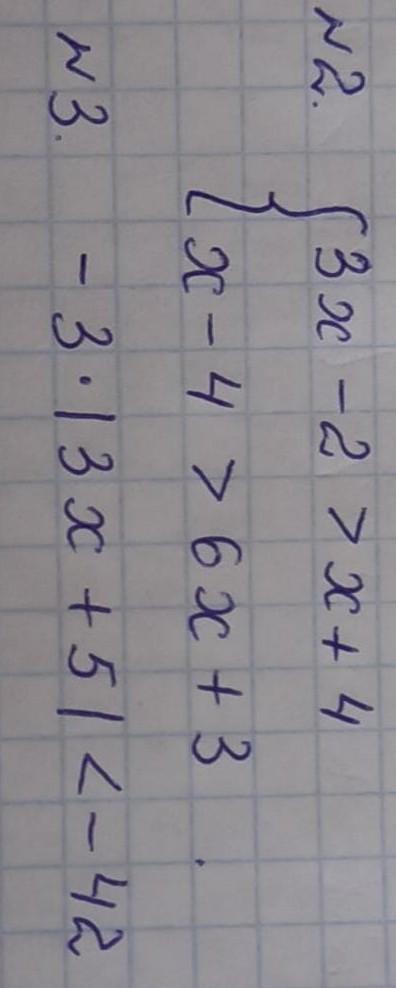 №2. { 3x - 2 > x + 4
x - 4 > 6x + 3
№3. -3 · |3x + 5| < -42